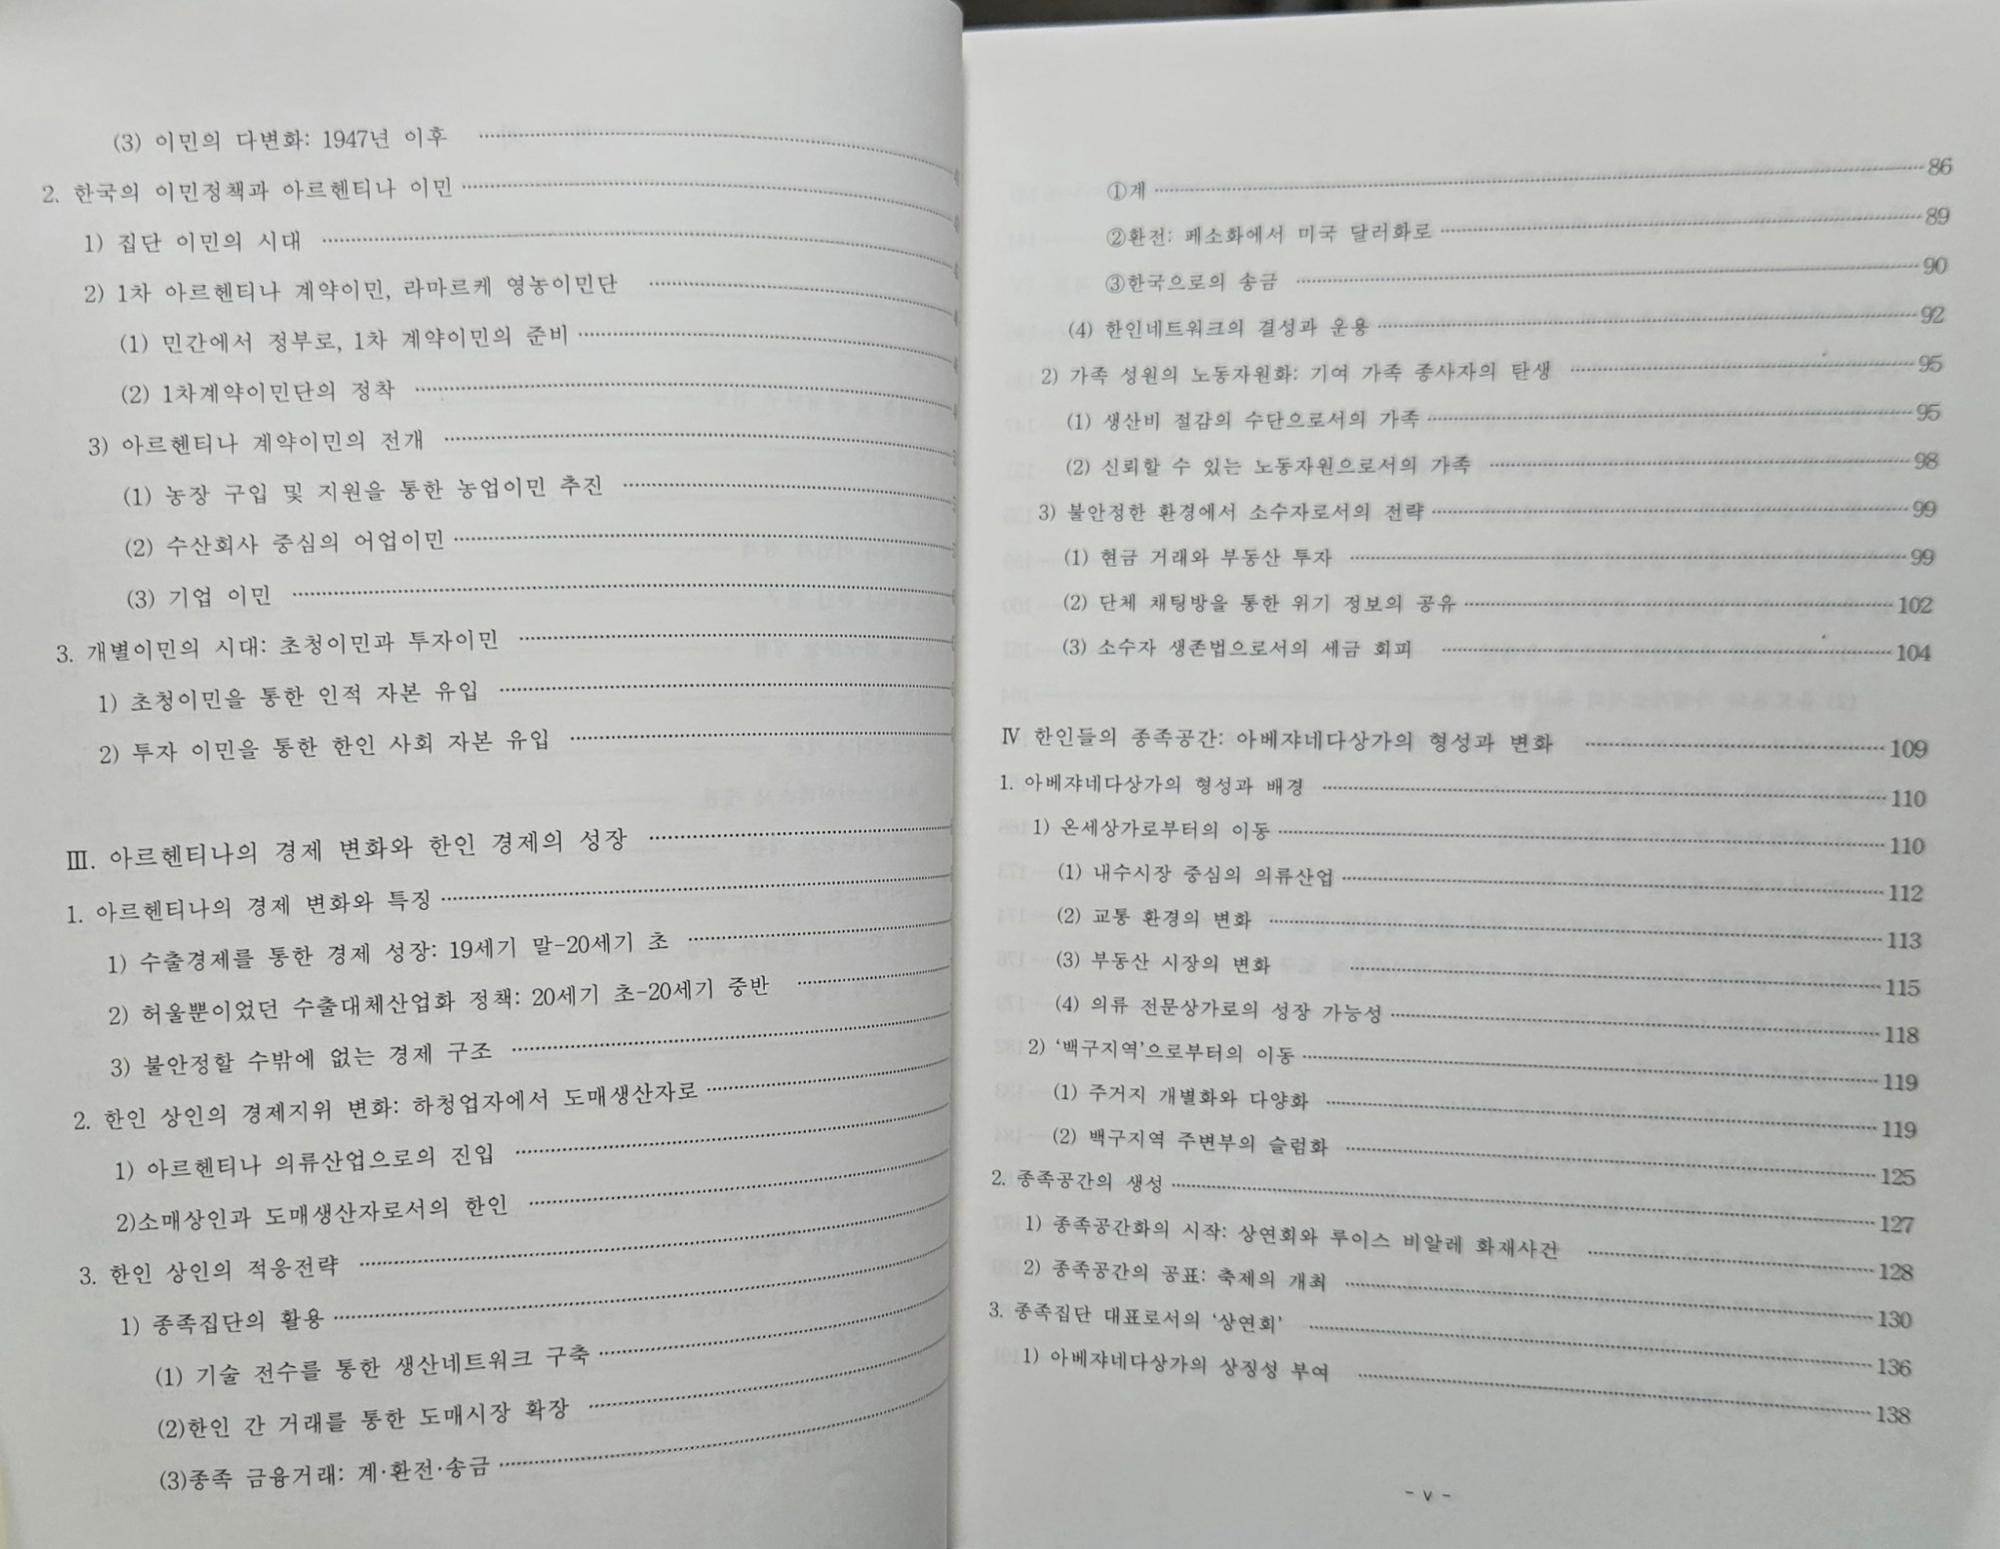 (3) 이민의 다변화: 1947년 이후
2. 한국의 이민정책과 아르헨티나 이민
1) 집단 이민의 시대
2) 1차 아르헨티나 계약이민, 라마르케 영농이민단
(1) 민간에서 정부로, 1차 계약이민의 준비
(2) 1차계약이민단의 정착
3) 아르헨티나 계약이민의 전개
(1) 농장 구입 및 지원을 통한 농업이민 추진
(2) 수산회사 중심의 어업이민
(3) 기업 이민
3. 개별이민의 시대: 초청이민과 투자이민
1) 초청이민을 통한 인적 자본 유입
2) 투자 이민을 통한 한인 사회 자본 유입
Ⅲ. 아르헨티나의 경제 변화와 한인 경제의 성장
1. 아르헨티나의 경제 변화와 특징
1) 수출경제를 통한 경제 성장: 19세기 말-20세기 초
2) 허울뿐이었던 수출대체산업화 정책: 20세기 초-20세기 중반
3) 불안정할 수밖에 없는 경제 구조
2. 한인 상인의 경제지위 변화: 하청업자에서 도매생산자로
1) 아르헨티나 의류산업으로의 진입
2)소매상인과 도매생산자로서의 한인
3. 한인 상인의 적응전략
1) 종족집단의 활용
(1) 기술 전수를 통한 생산네트워크 구축
(2)한인 간 거래를 통한 도매시장 확장
(3)종족 금융거래: 계·환전·송금
①계 86
②환전: 페소화에서 미국 달러화로 89
③한국으로의 송금 90
(4) 한인네트워크의 결성과 운용 92
2) 가족 성원의 노동자원화: 기여 가족 종사자의 탄생 95
(1) 생산비 절감의 수단으로서의 가족 95
(2) 신뢰할 수 있는 노동자원으로서의 가족 98
3) 불안정한 환경에서 소수자로서의 전략 99
(1) 현금 거래와 부동산 투자 99
(2) 단체 채팅방을 통한 위기 정보의 공유 102
(3) 소수자 생존법으로서의 세금 회피 104
Ⅳ 한인들의 종족공간: 아베쟈네다상가의 형성과 변화 109
1. 아베쟈네다상가의 형성과 배경 110
1) 온세상가로부터의 이동 110
(1) 내수시장 중심의 의류산업 112
(2) 교통 환경의 변화 113
(3) 부동산 시장의 변화 115
(4) 의류 전문상가로의 성장 가능성 118
2) ‘백구지역’으로부터의 이동 119
(1) 주거지 개별화와 다양화 119
(2) 백구지역 주변부의 슬럼화 125
2. 종족공간의 생성 127
1) 종족공간화의 시작: 상연회와 루이스 비알레 화재사건 128
2) 종족공간의 공표: 축제의 개최 130
3. 종족집단 대표로서의 ‘상연회’ 136
1) 아베쟈네다상가의 상징성 부여 138
- v -